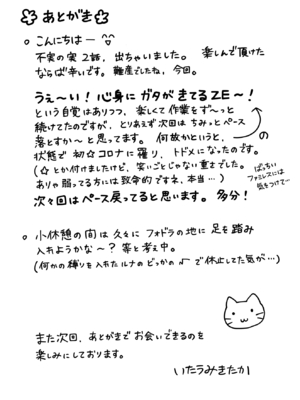 あとがき
○ こんにちはー
不実の実 2話, 出ちゃいました。 楽しんで頂けた
ならば幸いです。難産でしたね, 今回。
うぇ〜い! 心身に ガタが きてる ZE〜!
という自覚はありつつ, 楽しくて作業をず〜っと
続けてたのですが, とりあえず次回は ちみっとペース
落とすか〜と思ってます。 何故かというと,
状態で 初☆コロナに罹り, トドメになったのです。
(☆とか付けましたけど, 笑いごとじゃない重さでした。
ありゃ弱ってる方には致命的ですネ, 本当…)
ばっちい
ファミレスには
気をつけてー
次々回はペース戻ってると思います。 多分!
○ 小休憩の間は 久々に フォドラの地に 足を踏み
入れようかな〜? 等と考え中。
(何かの縛りを入れたルナのどっかの √ で休止してた気が…)
また次回, あとがきで お会いできるのを
楽しみにしております。
いたうみきたか